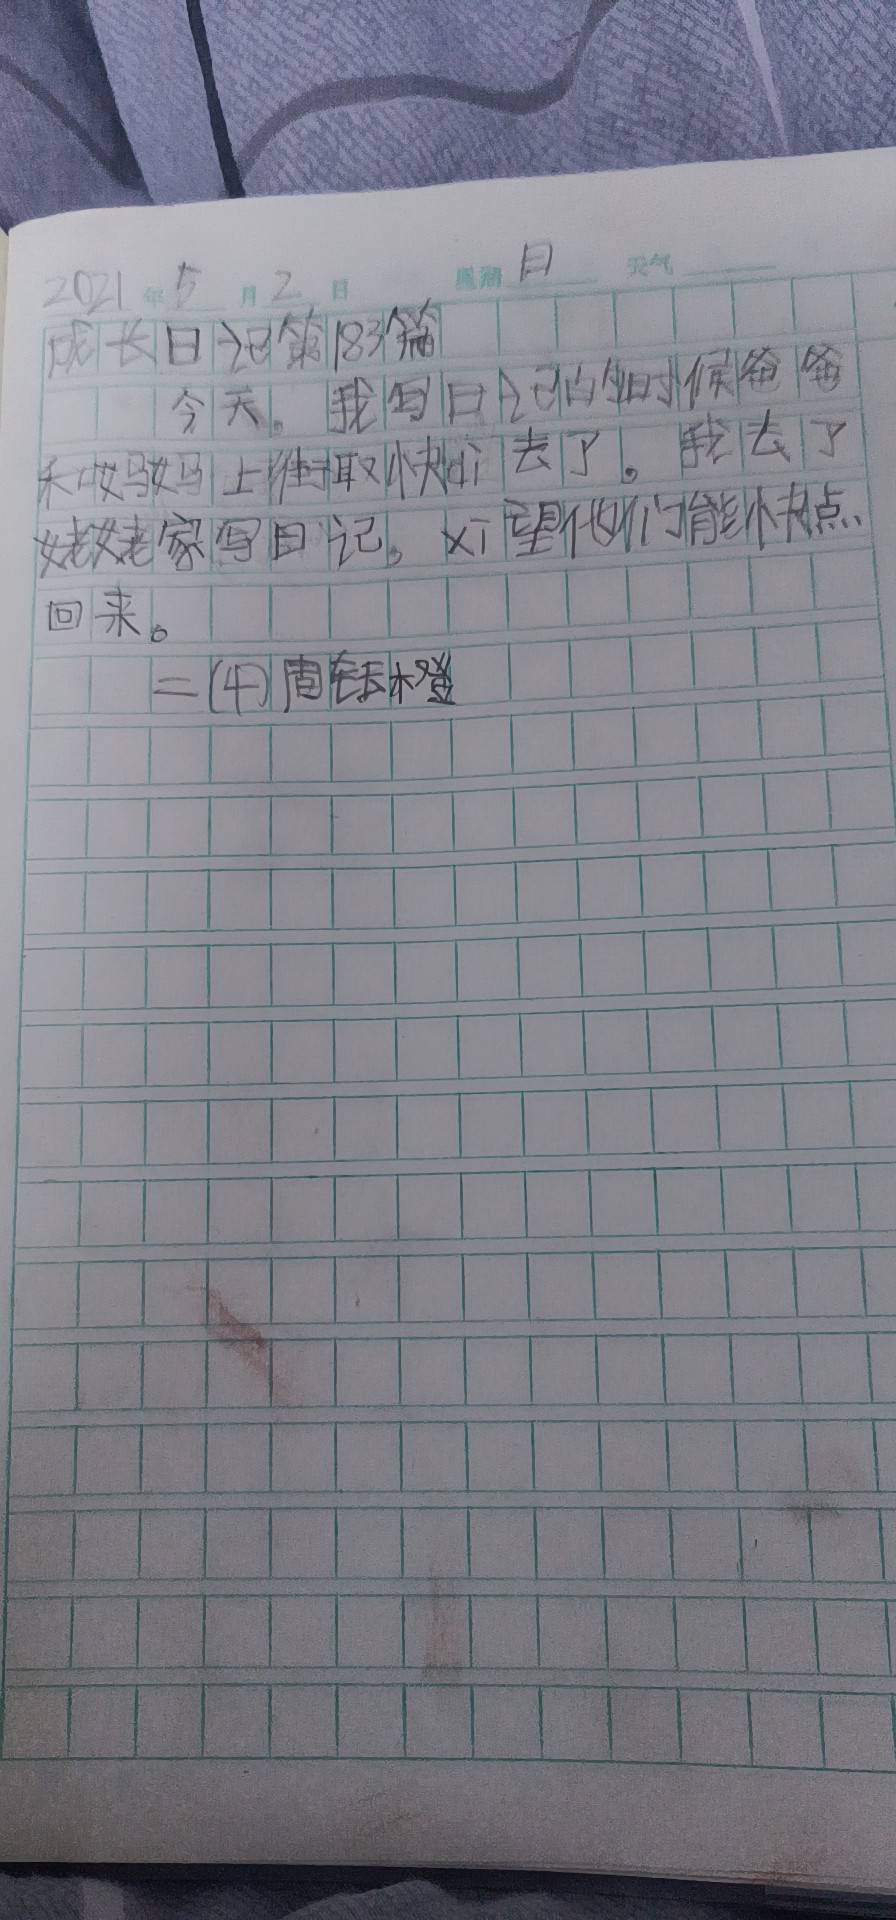 2021年5月2日 星期日 天气
成长日记第183篇
今天。我写日记的时候爸爸
和妈妈上街取快递去了。我去了
姥姥家写日记。希望他们能快点
回来。
二(4)周钰橙